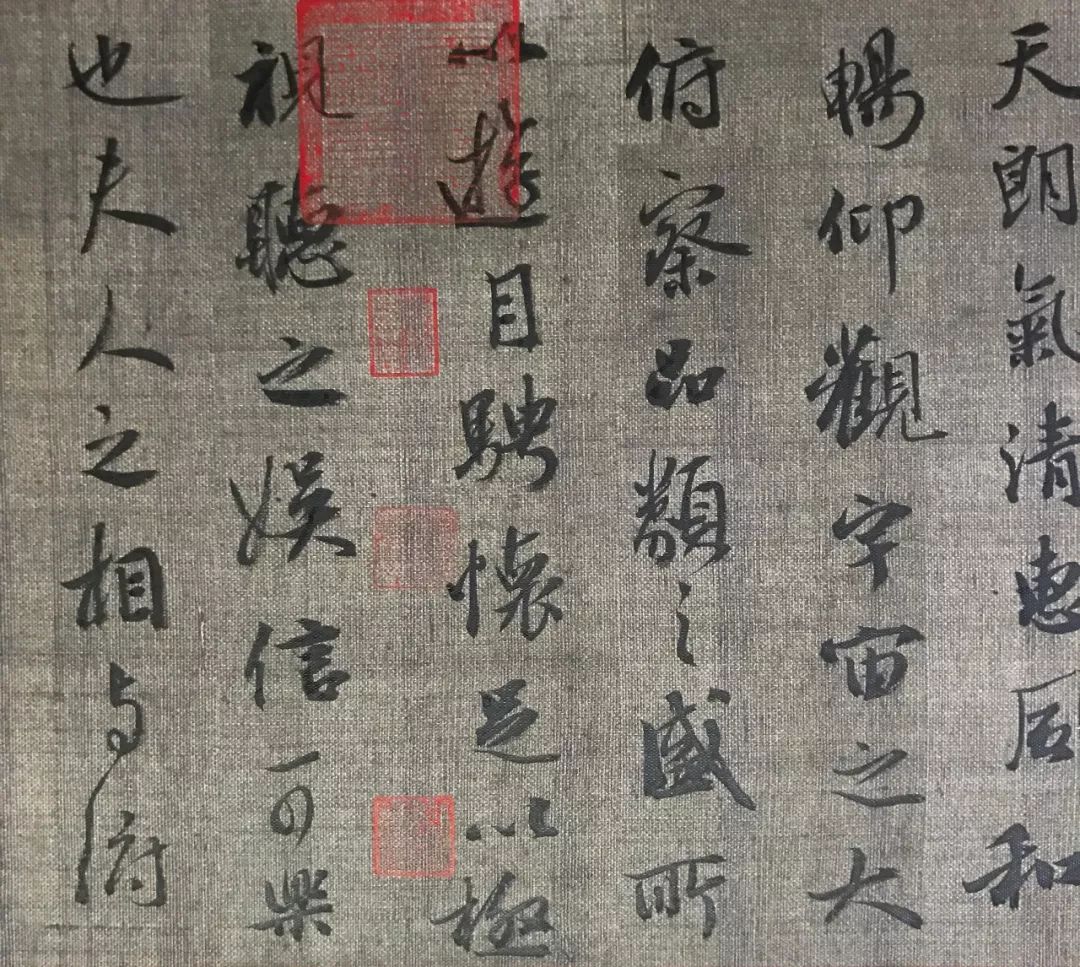 天朗氣清惠風和
暢仰觀宇宙之大
俯察品類之盛所
以遊目騁懷足以極
視聽之娛信可樂
也夫人之相與俯